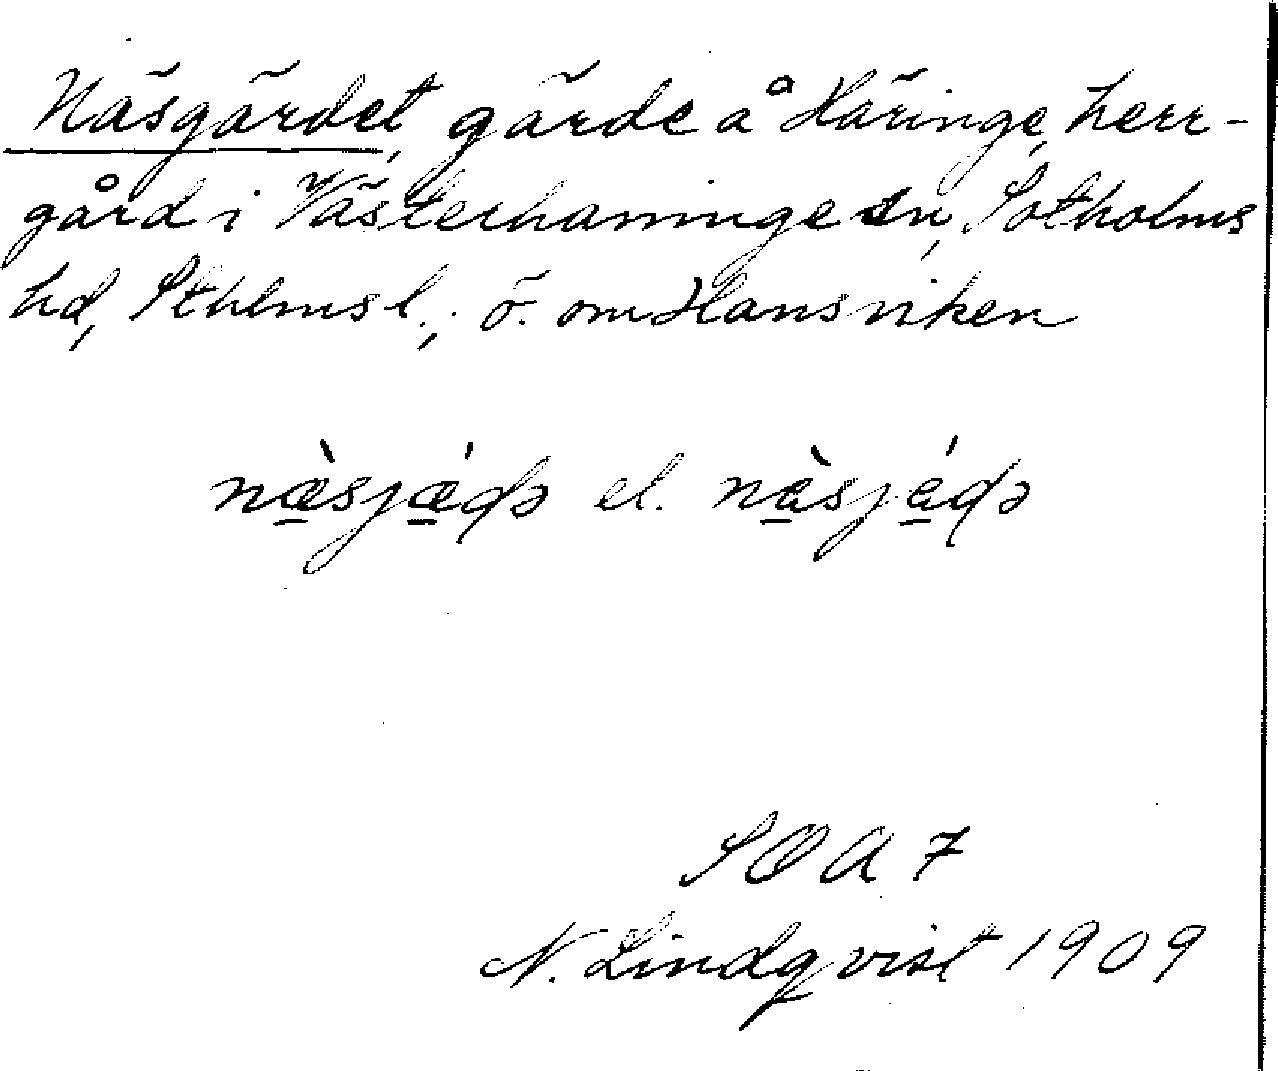 Näsgärdet, gärde å Häringe, herr-
gård i Västerhaninge sn, Sotholms
hd, Sthlms l.; ö. om Hansviken
næ̀sjǽḍə el. nàsjáḍə
SOA 7
N. Lindqvist 1909